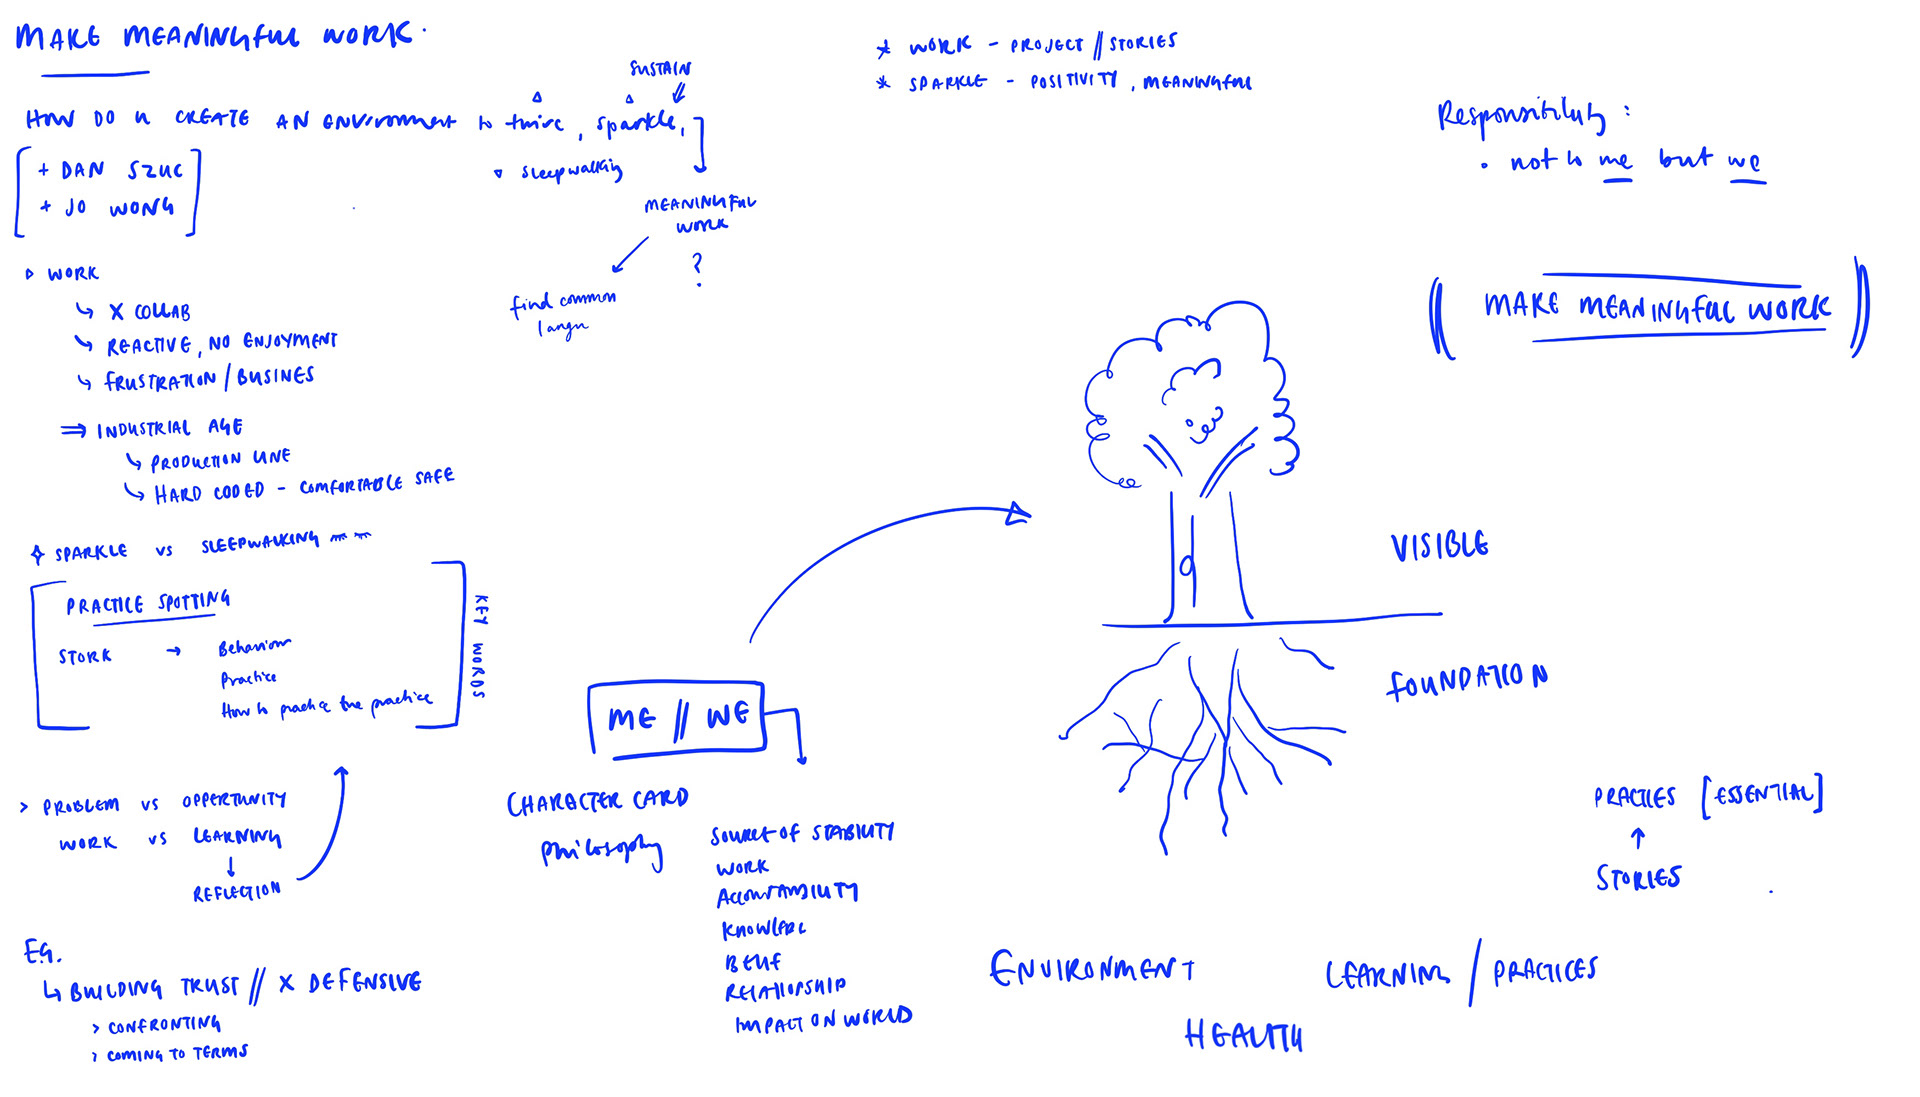 MAKE MEANINGFUL WORK.
HOW DO U CREATE AN ENVIRONMENT to thrive, sparkle,
SUSTAIN
sleepwalking
MEANINGFUL
WORK
?
find common
langu
[ + DAN SZUC
+ JO WONG ]
WORK
X COLLAB
REACTIVE, NO ENJOYMENT
FRUSTRATION / BUSINES
INDUSTRIAL AGE
PRODUCTION LINE
HARD CODED - COMFORTABLE SAFE
SPARKLE VS SLEEPWALKING
PRACTICE SPOTTING
STORK → Behaviour
Practice
How to practice the practice
KEY WORDS
> PROBLEM VS OPPERTUNITY
WORK VS LEARNING
REFLECTION
E.G.
BUILDING TRUST // X DEFENSIVE
> CONFRONTING
> COMING TO TERMS
* WORK - PROJECT // STORIES
* SPARKLE - POSITIVITY, MEANINGFUL
Responsibility:
• not to me but we
MAKE MEANINGFUL WORK
ME // WE
CHARACTER CARD
Philosophy
SOURCE OF STABILITY
WORK
ACCOUNTABILITY
BELIEF
RELATIONSHIP
IMPACT ON WORLD
VISIBLE
FOUNDATION
PRACTIES [ESSENTIAL]
↑
STORIES
ENVIRONMENT
LEARNING / PRACTICES
HEALTH